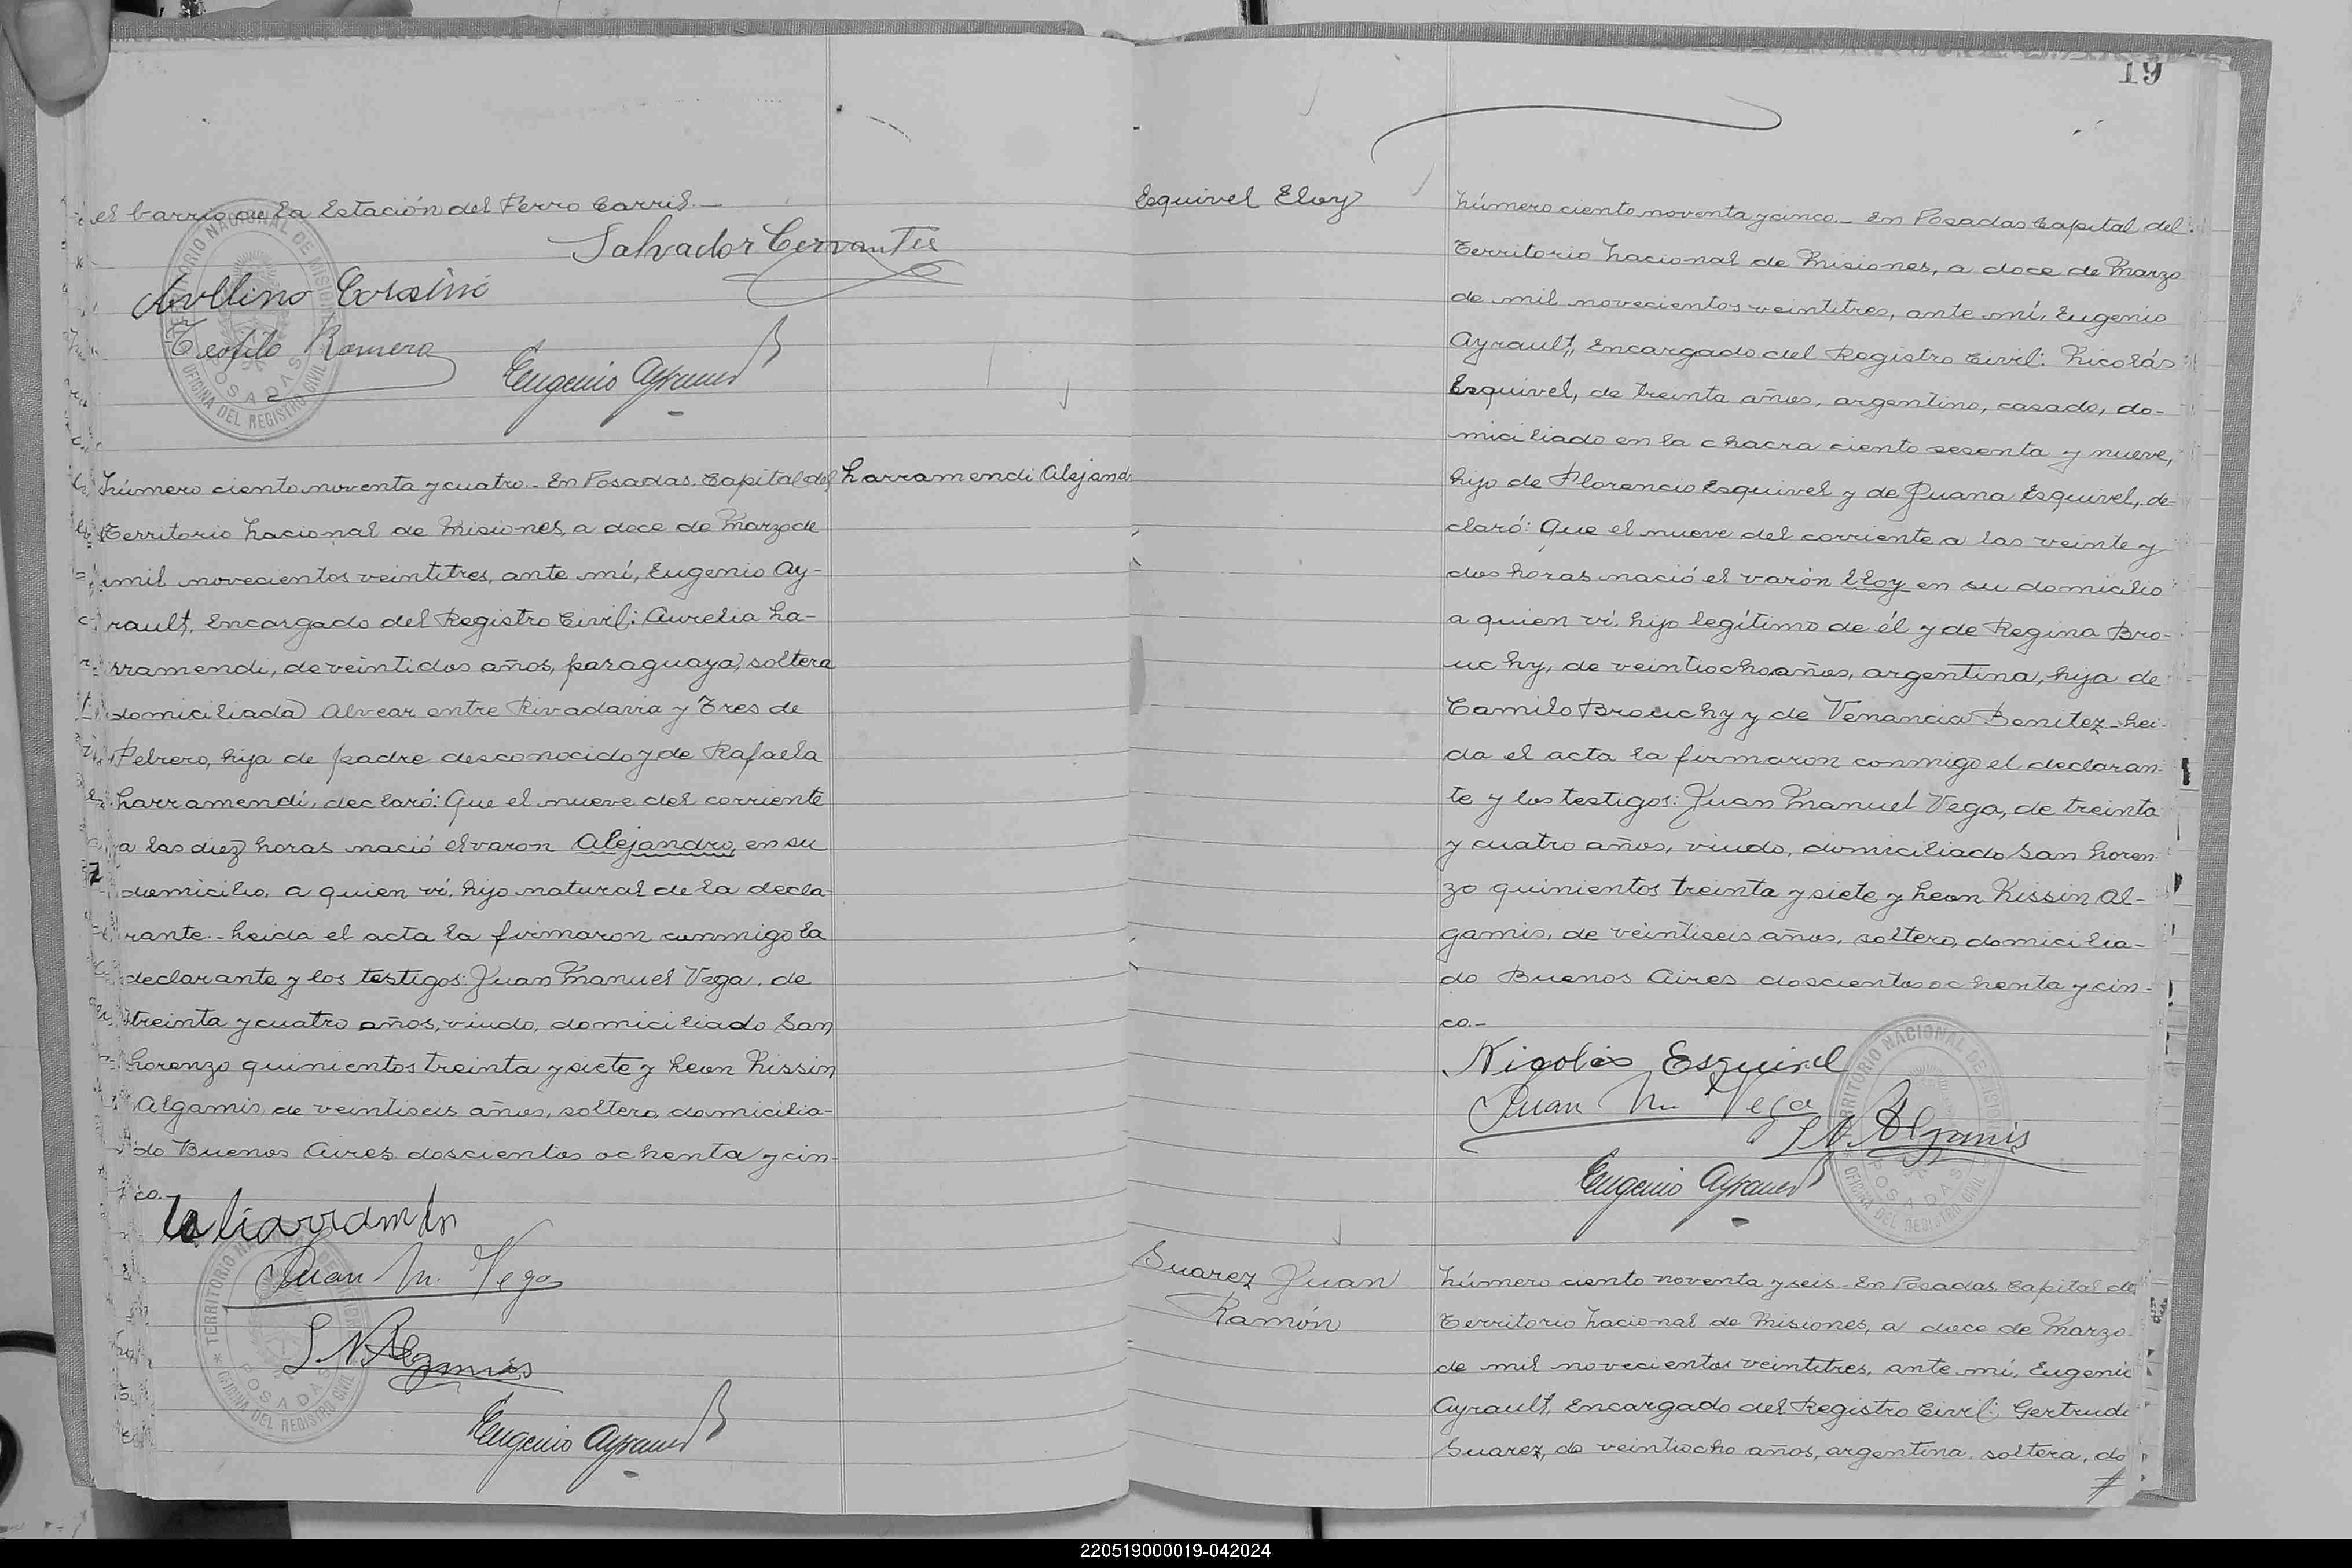 el barrio de la Estación del Ferro Carril.—
Salvador Cervantes
Avllino
Teofilo Romero
Eugenio Ayrault
Número ciento noventa y cuatro.- En Posadas, Capital del
Territorio Nacional de Misiones, a doce de Marzo de
mil novecientos veintitres, ante mí, Eugenio Ay-
rault, Encargado del Registro Civil: Aurelia La-
rramendi, de veintidos años, paraguaya, soltera
domiciliada Alvear entre Rivadavia y Tres de
Febrero, hija de padre desconocido y de Rafaela
Larramendi, declaró: Que el nueve del corriente
a las diez horas nació el varon Alejandro, en su
domicilio, a quien ví, hijo natural de la decla-
rante.- Leida el acta la firmaron conmigo la
declarante y los testigos: Juan Manuel Vega, de
treinta y cuatro años, viudo, domiciliado San
Lorenzo quinientos treinta y siete y Leon Nissin
Algamis, de veintiseis años, soltero, domicilia-
do Buenos Aires doscientos ochenta y cin-
co.-
Juan M. Vega
L N Algamis
Eugenio Ayrault
Larramendi Alejand
TERRITORIO NACIONAL DE MISIONES
POSADAS
OFICINA DEL REGISTRO CIVIL
19
Esquivel Eloy
Número ciento noventa y cinco.- En Posadas Capital del
Territorio Nacional de Misiones, a doce de Marzo
de mil novecientos veintitres, ante mí, Eugenio
Ayrault, Encargado del Registro Civil: Nicolás
Esquivel, de treinta años, argentino, casado, do-
miciliado en la chacra ciento sesenta y nueve,
hijo de Florencio Esquivel y de Juana Esquivel, de-
claró: Que el nueve del corriente a las veinte y
dos horas nació el varón Eloy en su domicilio
a quien ví, hijo legítimo de él y de Regina Bro-
uchy, de veintiocho años, argentina, hija de
Camilo Brouchy y de Venancia Benitez.- Lei-
da el acta la firmaron conmigo el declaran-
te y los testigos: Juan Manuel Vega, de treinta
y cuatro años, viudo, domiciliado San Loren-
zo quinientos treinta y siete y Leon Nissin Al-
gamis, de veintiseis años, soltero, domicilia-
do Buenos Aires doscientos ochenta y cin-
co.-
Nicolás Esquivel
Juan M. Vega
L N Algamis
Eugenio Ayrault
TERRITORIO NACIONAL DE MISIONES
POSADAS
OFICINA DEL REGISTRO CIVIL
Suarez Juan
Ramón
Número ciento noventa y seis.- En Posadas, Capital del
Territorio Nacional de Misiones, a doce de Marzo
de mil novecientos veintitres, ante mí, Eugenio
Ayrault, Encargado del Registro Civil: Gertrudi
Suarez, de veintiocho años, argentina, soltera, do
220519000019-042024